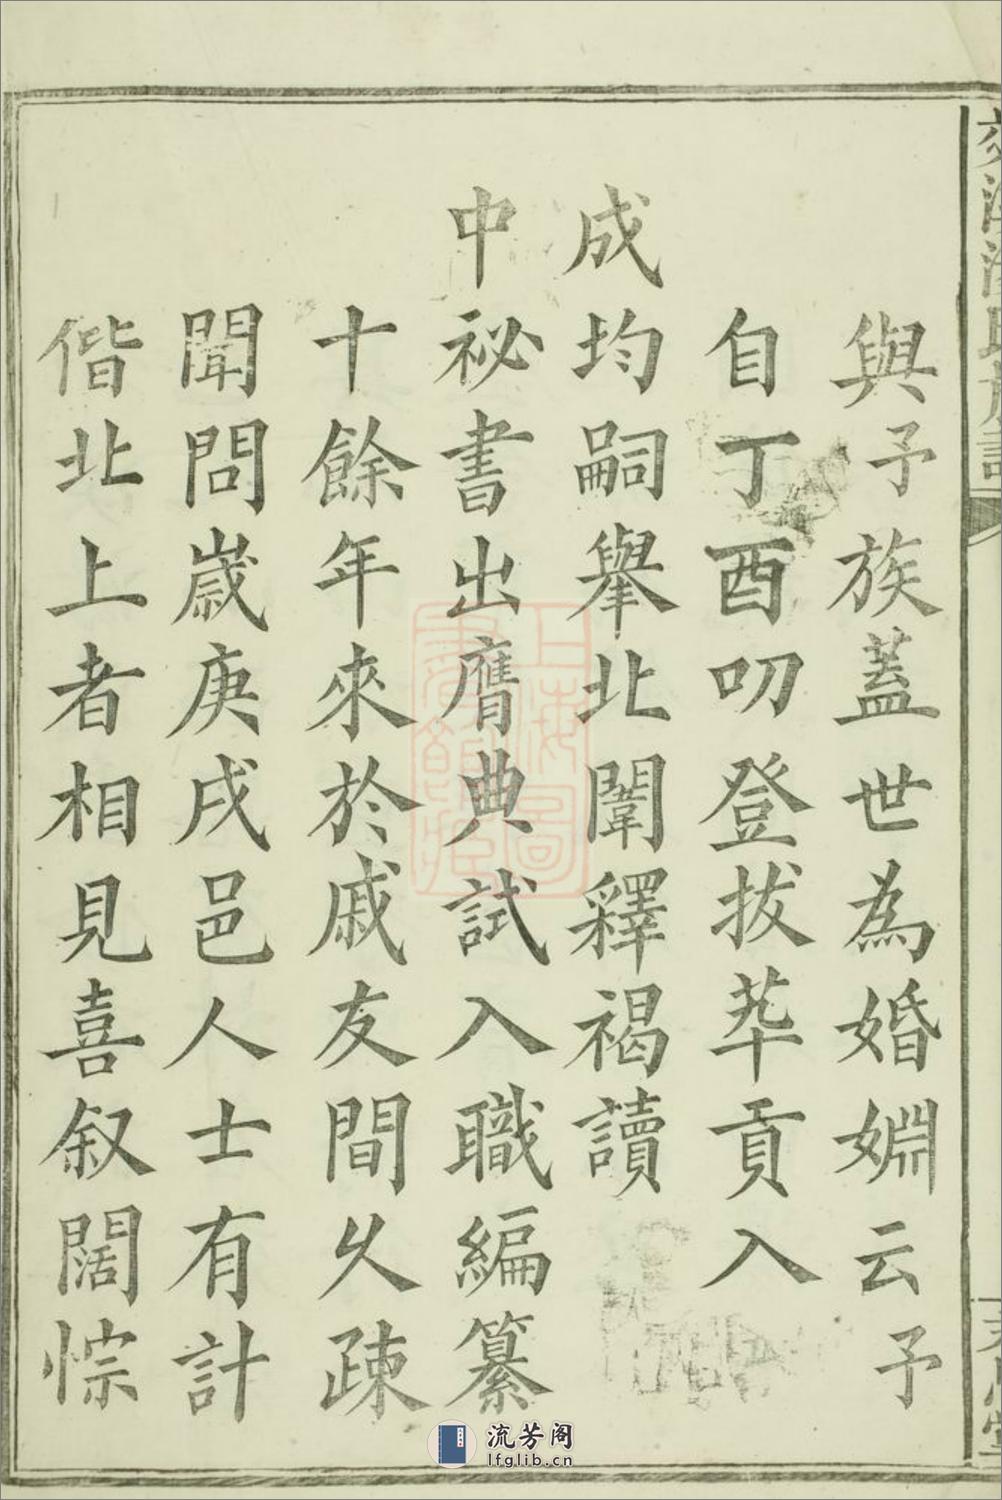 與予族蓋世為婚婣云予
自丁酉叨登拔萃貢入
成均嗣舉北闈釋褐讀
中祕書出膺典試入職編纂
十餘年來於戚友間久疎
聞問歲庚戌邑人士有計
偕北上者相見喜叙闊悰
流芳阁
lfglib.cn